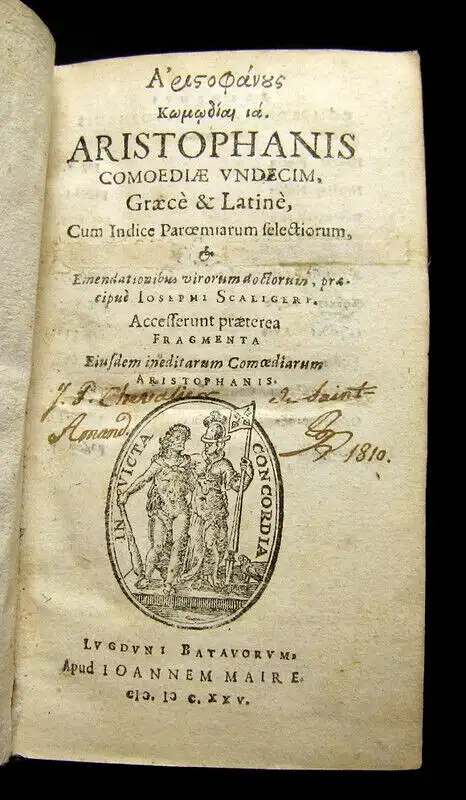 Ἀριστοφάνους
Κωμῳδίαι ιά.
ARISTOPHANIS
COMOEDIÆ VNDECIM,
Græcè & Latinè,
Cum Indice Parœmiarum ſelectiorum,
&
Emendationibus virorum doctorum, præ-
cipuè IOSEPHI SCALIGERI.
Acceſſerunt præterea
FRAGMENTA
Eiuſdem ineditarum Comœdiarum
ARISTOPHANIS.
J. P. Chevalier de Saint-
Amand. 1810.
INVICTA CONCORDIA
LVGDVNI BATAVORVM,
Apud IOANNEM MAIRE.
CIↃ. IↃ C. XXV.